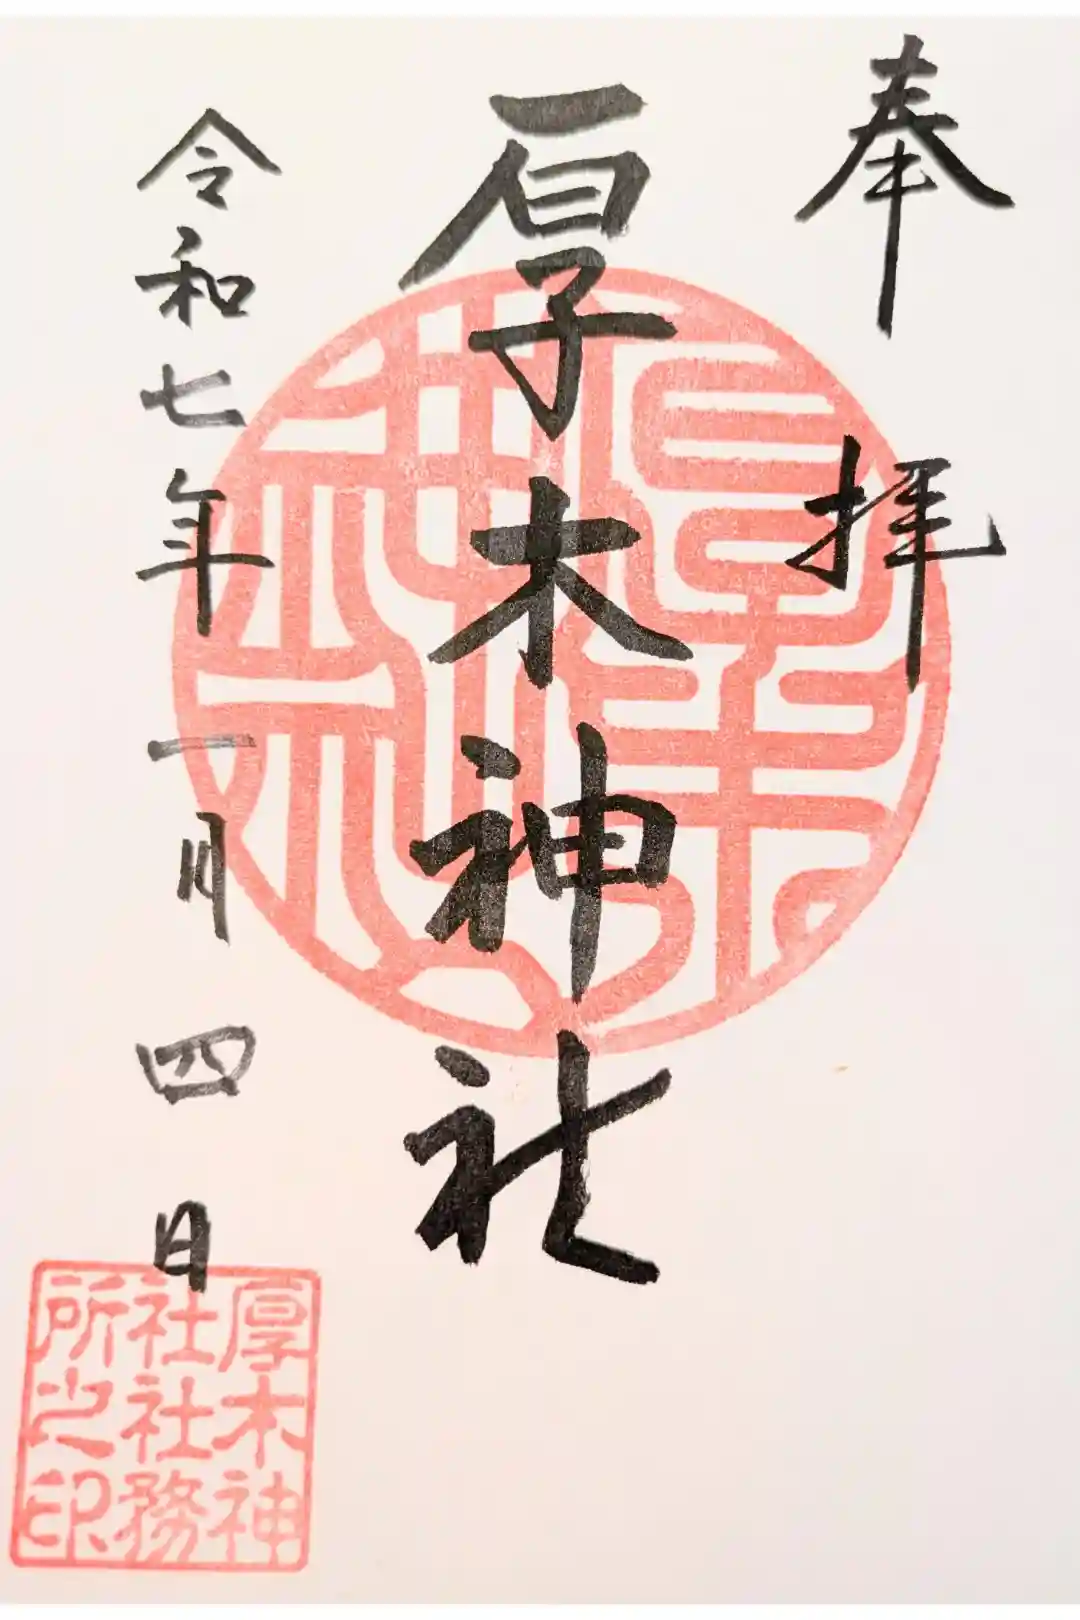 奉拝
厚木神社
令和七年一月四日
厚木神社
厚木神
社社務
所之印